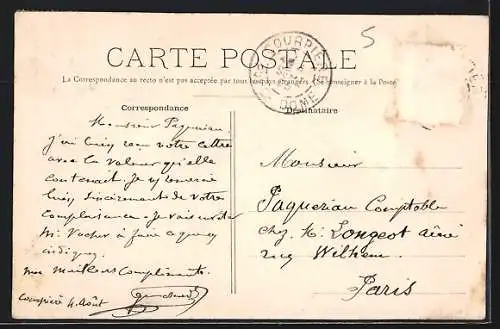 5
COURPIÈRE
DOME
CARTE POSTALE
La Correspondance au recto n'est pas acceptée par tous pays étrangers. Se renseigner à la Poste
Correspondance
Destinataire
Monsieur Paquerian
J'ai bien reçu votre lettre
avec la valeur qu'elle
contenait. Je vous remercie
bien sincèrement de votre
complaisance. Je vais
Mr Vacher à faire
indiqué
mes meilleurs Compliments.
Courpière 4 Août
Monsieur
Paquerian Comptable
chez Mr Longeot aîné
rue Wilhem
Paris